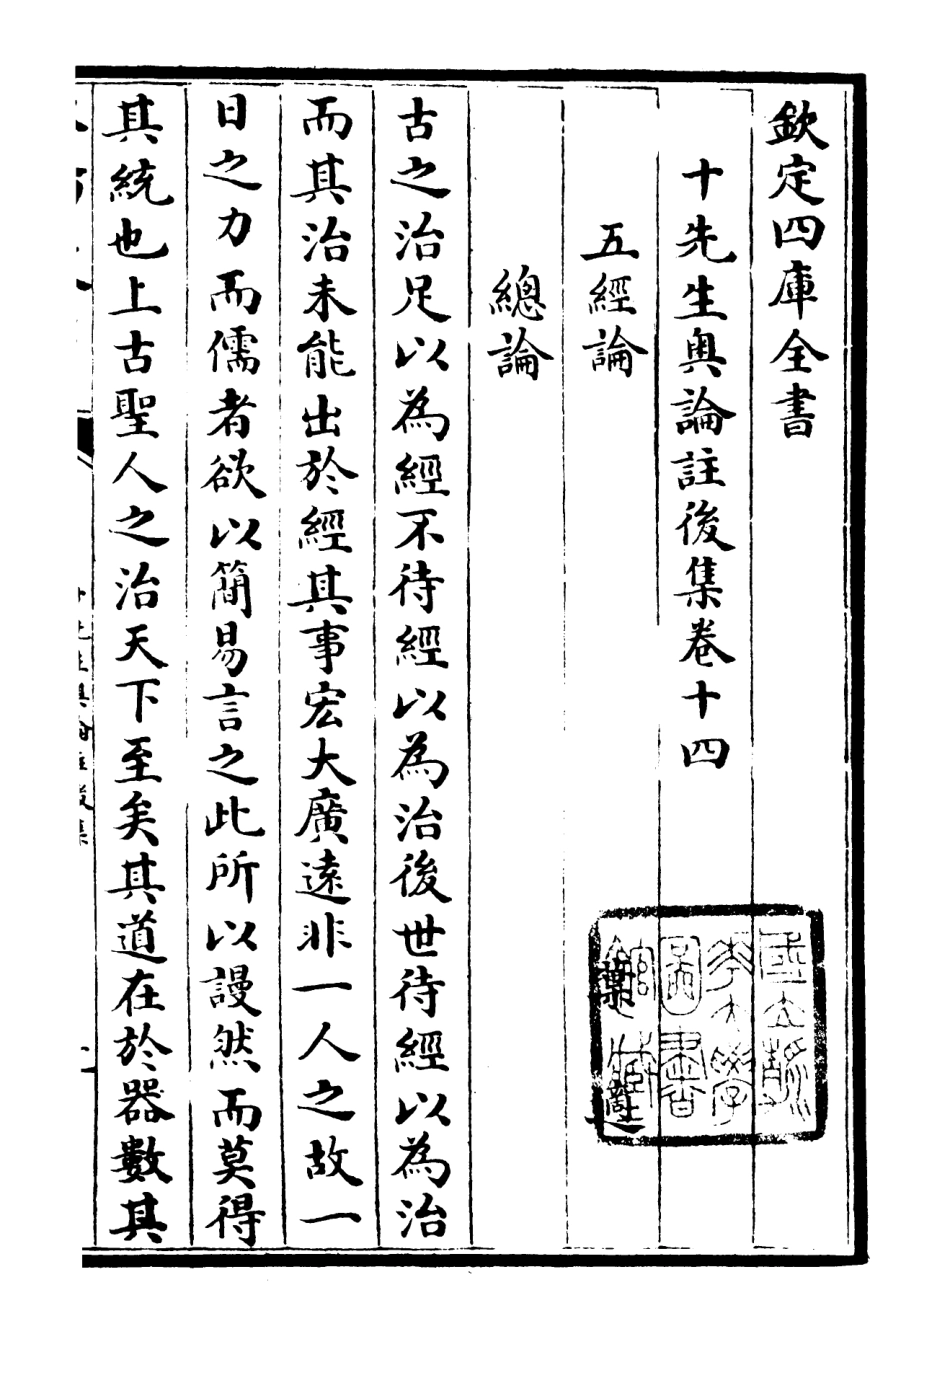 欽定四庫全書
十先生奧論註後集卷十四
五經論
葉適
總論
古之治足以為經不待經以為治後世待經以為治
而其治未能出於經其事宏大廣遠非一人之故一
日之力而儒者欲以簡易言之此所以謾然而莫得
其統也上古聖人之治天下至矣其道在於器數其